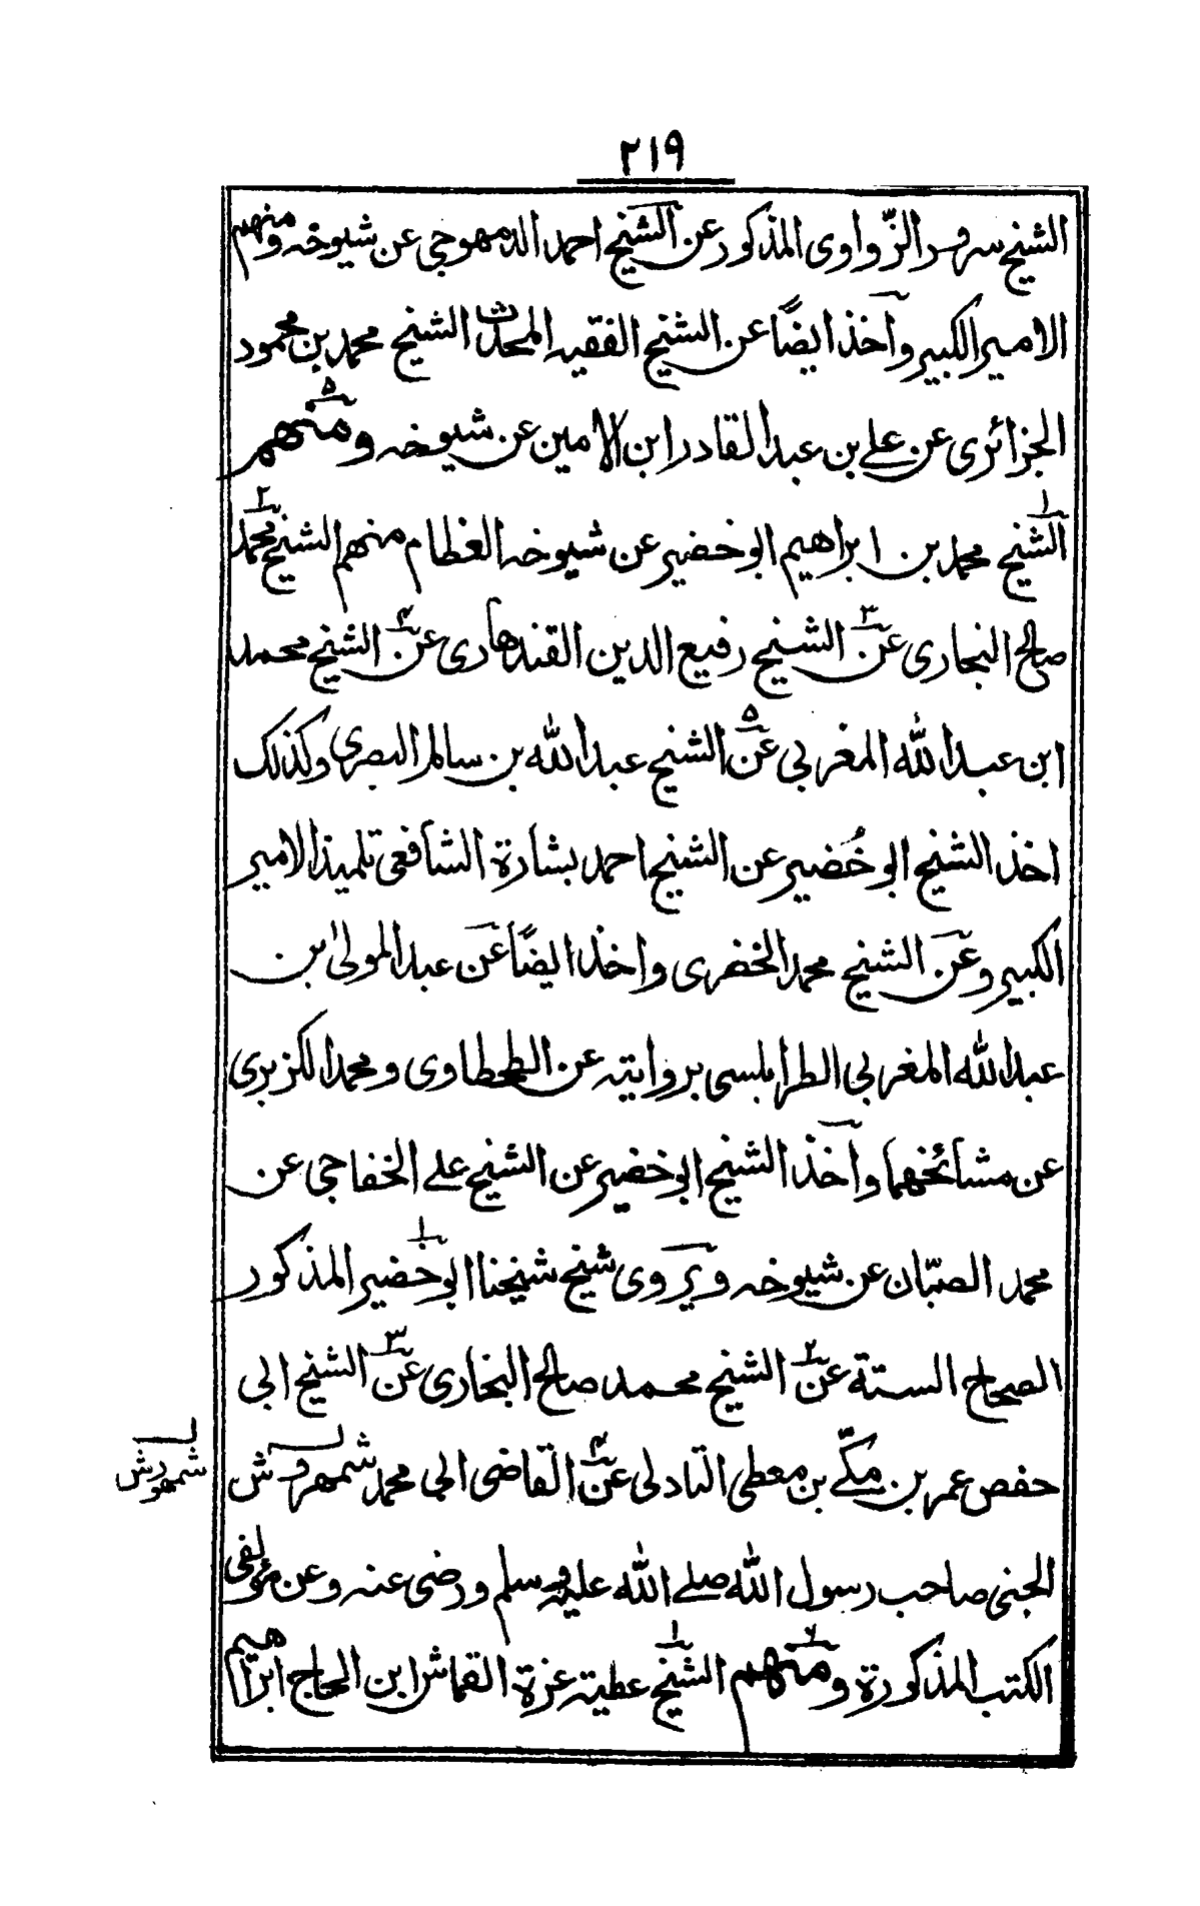 ٢١٩
الشيخ سرور الزّواوى المذكور عن الشيخ احمد الدمهوجى عن شيوخه ومنهم
الامير الكبير وآخذ ايضًا عن الشيخ الفقيه المحدث الشيخ محمد بن محمود
الجزائرى عن على بن عبد القادر ابن الامين عن شيوخه ومنهم ٥
الشيخ ١ محمد بن ابراهيم ابو خضير عن شيوخه العظام منهم الشيخ محمد ٢
صالح البخارى عن ٣ الشيخ رفيع الدين القندهارى عن ٤ الشيخ محمد
ابن عبد الله المغربى عن ٥ الشيخ عبد الله بن سالم البصرى وكذلك
اخذ الشيخ ابو خُضير عن الشيخ احمد بشارة الشافعى تلميذ الامير
الكبير وعن الشيخ محمد الخضرى واخذ ايضًا عن عبد المولى بن
عبد الله المغربى الطرابلسى بروايته عن الطحطاوى ومحمد الكزبرى
عن مشائخهما وآخذ الشيخ ابو خضير عن الشيخ على الخفاجى عن
محمد الصبّان عن شيوخه ويروى شيخ شيخنا ابو خضير ١ المذكور
الصحاح الستة عن ٢ الشيخ محمد صالح البخارى عن ٣ الشيخ ابى
حفص عمر بن مكّے بن معطى التادلى عن ٤ القاضى ابى محمد شمهروش
شمهورش
الجنى صاحب رسول الله صلے الله عليه وسلم ورضى عنه وعن مؤلفى
الكتب المذكورة ومنهم ٦ الشيخ ١ عطية عزة القماش ابن الحاج ابراهيم